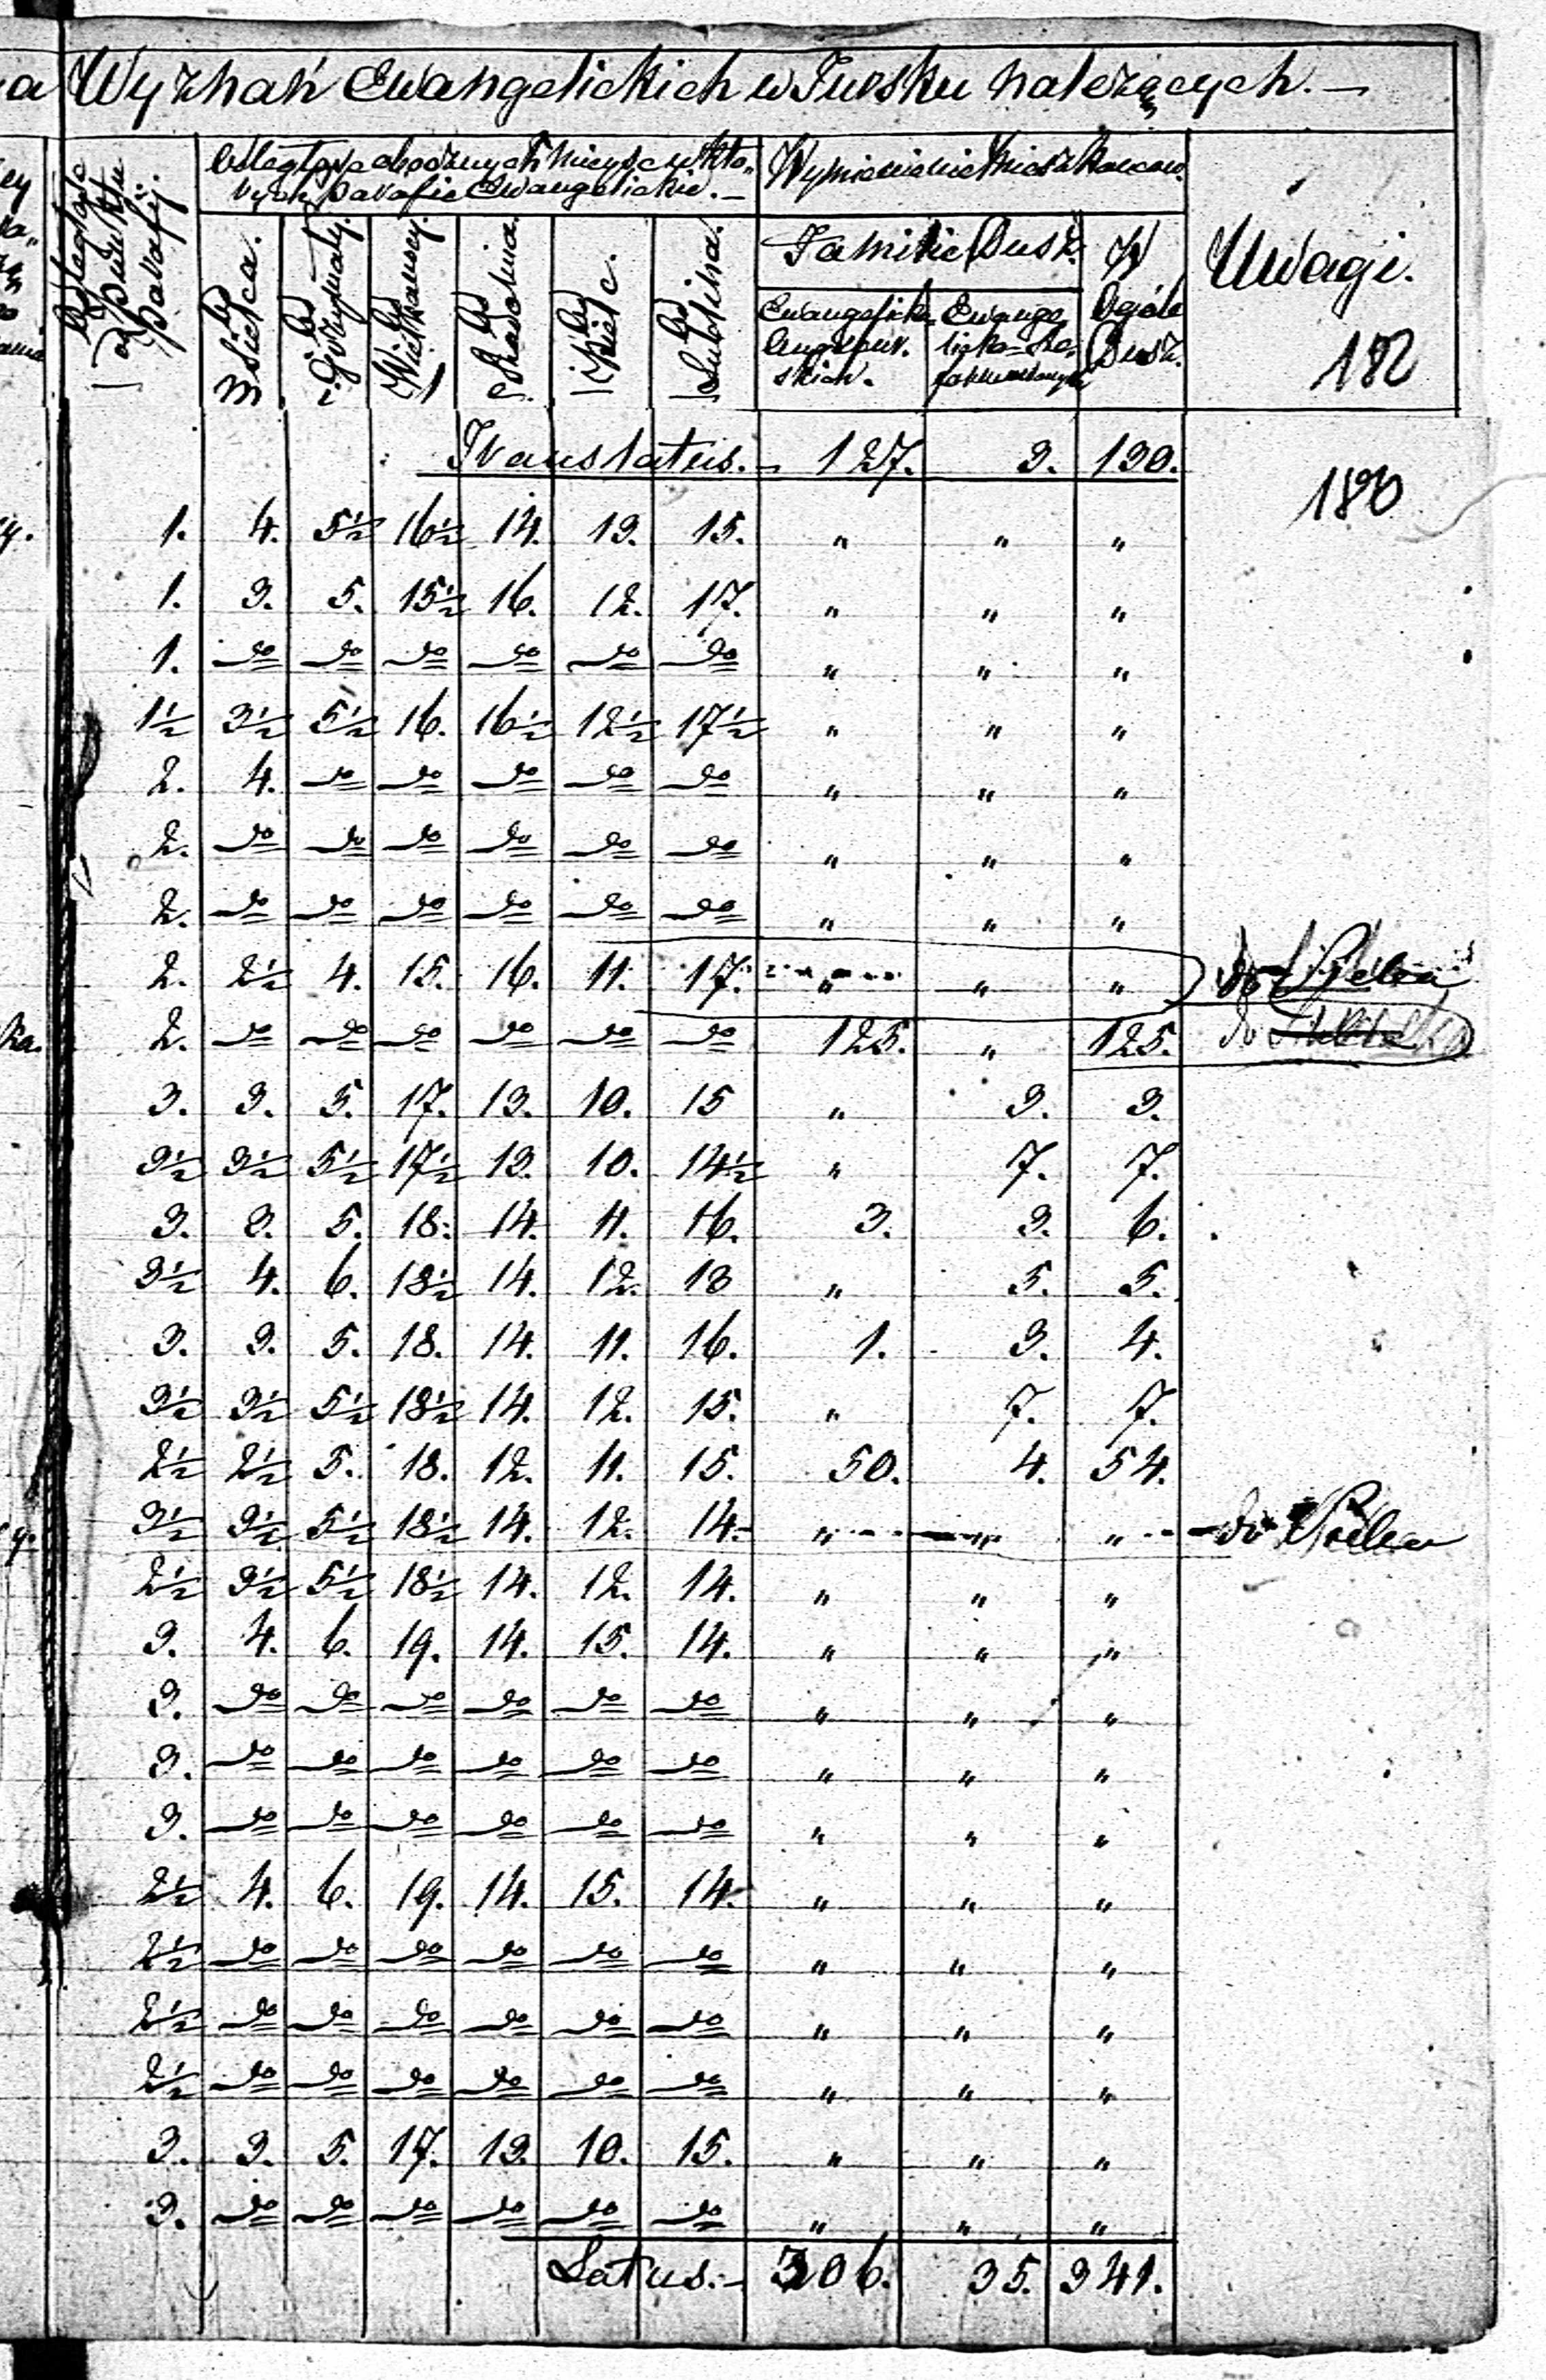 a Wyznań Ewangelickich w Tursku należących. —
Odległość
od punktu
Parafij.
Odległość obocznych mieysc w któ„
rych parafie Ewangelickie. —
Wymienienie Mieszkańców.
Uwagi.
od
Sielca.
od
od
od
Radomia.
od
Kielc.
od
Lublina.
Familie Dusz.
W
Ogóle
Dusz.
Ewangelick.
Augsbur.
skich.
Ewange„
licko-Re„
formowanych
182
Translatus. — 127. 3. 130.
180
1. 4. 5½ 16½ 14. 13. 15. „ „ „
1. 3. 5. 15½ 16. 12. 17. „ „ „
1. do do do do do do „ „ „
1½ 3½ 5½ 16. 16½ 12½ 17½ „ „ „
2. 4. do do do do do „ „ „
2. do do do do do do „ „ „
2. do do do do do do „ „ „
2. 2½ 4. 15. 16. 11. 17. „ „ „ do
2. do do do do do do 125. „ 125. do
3. 3. 5. 17. 13. 10. 15 „ 3. 3.
3½ 3½ 5½ 17½ 13. 10. 14½ „ 7. 7.
3. 3. 5. 18. 14. 11. 16. 3. 3. 6.
3½ 4. 6. 18½ 14. 12. 13 „ 5. 5.
3. 3. 5. 18. 14. 11. 16. 1. 3. 4.
3½ 3½ 5½ 18½ 14. 12. 15. „ 7. 7.
2½ 2½ 5. 18. 12. 11. 15. 50. 4. 54.
3½ 3½ 5½ 18½ 14. 12. 14. „ „ „ do
2½ 3½ 5½ 18½ 14. 12. 14. „ „ „
3. 4. 6. 19. 14. 15. 14. „ „ „
3. do do do do do do „ „ „
3. do do do do do do „ „ „
3. do do do do do do „ „ „
2½ 4. 6. 19. 14. 15. 14. „ „ „
2½ do do do do do do „ „ „
2½ do do do do do do „ „ „
2½ do do do do do do „ „ „
3. 3. 5. 17. 13. 10. 15. „ „ „
3. do do do do do do „ „ „
Latus. — 306. 35. 341.